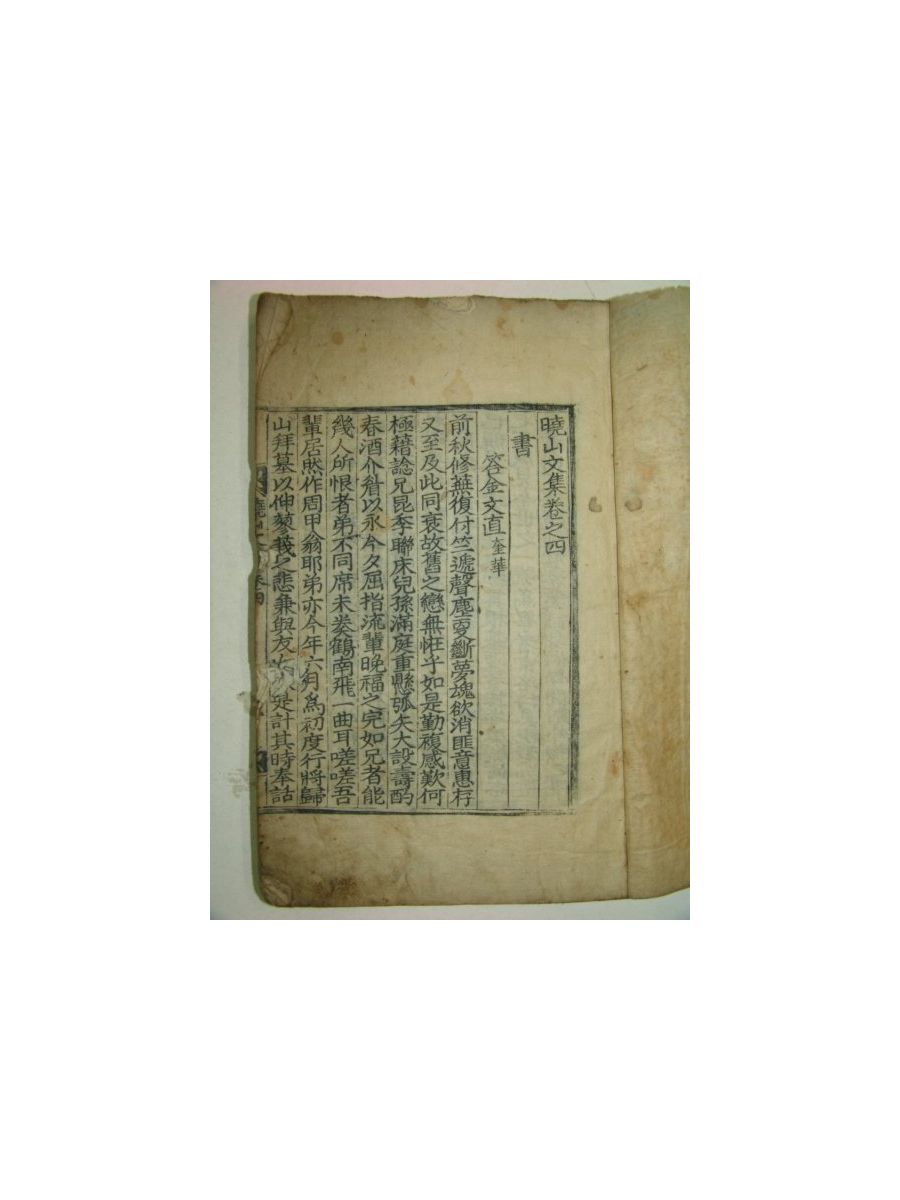 曉山文集卷之四
書
答金文直奎華
前秋修蕪復付竺遞聲塵敻斷夢魂欲消匪意惠存
又至及此同衰故舊之戀無恠乎如是勤複感歎何
極藉諗兄昆季聯床兒孫滿庭重懸弧矢大設壽酌
春酒介眉以永今夕屈指流輩晩福之完如兄者能
幾人所恨者弟不同席未奏鶴南飛一曲耳嗟嗟吾
輩居然作周甲翁耶弟亦今年六月爲初度行將歸
山拜墓以伸蓼莪之悲兼與友 是計其時奉話